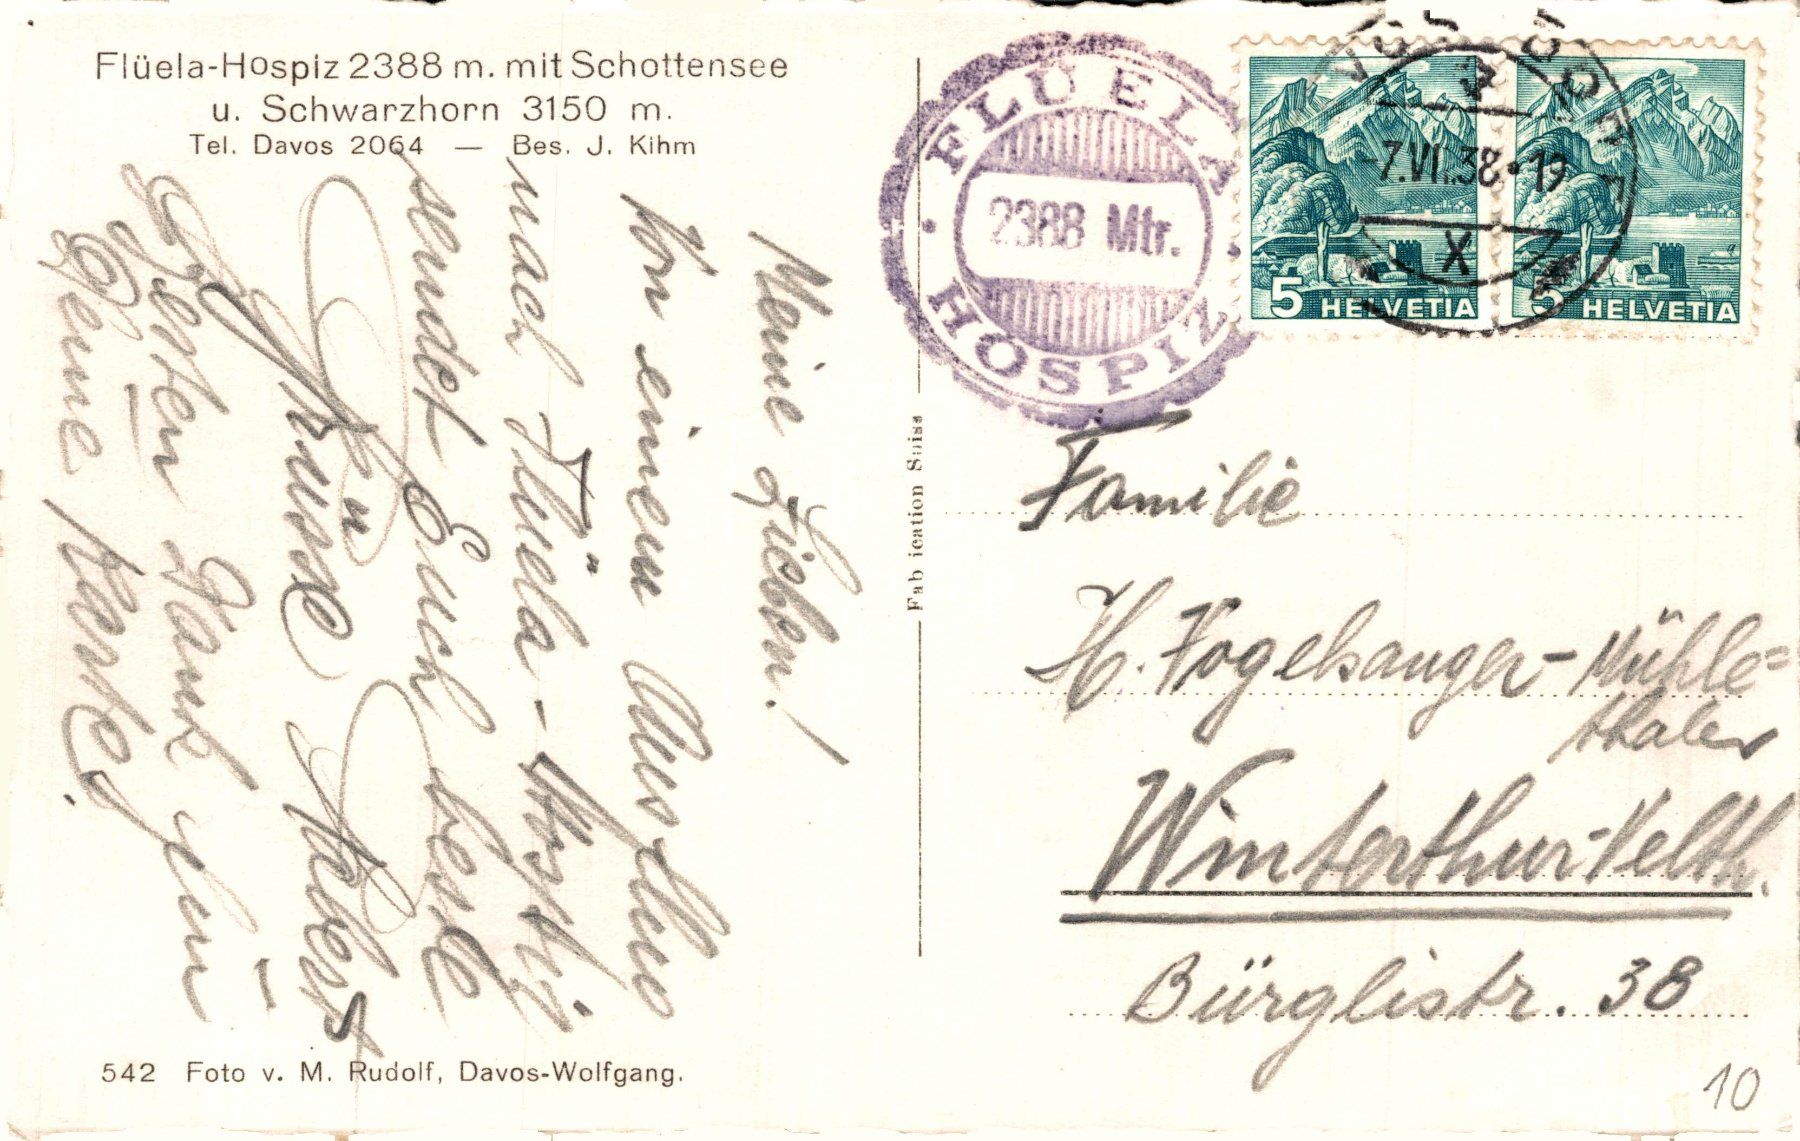 Flüela-Hospiz 2388 m. mit Schottensee
u. Schwarzhorn 3150 m.
Tel. Davos 2064 — Bes. J. Kihm
Meine Lieben!
Von einem Ausflug
nach Flüela-Hospiz
sendet Euch beste
Grüsse
Besten Dank für
Deine Karte!
542 Foto v. M. Rudolf, Davos-Wolfgang.
Fab ication Suiss
FLÜELA
2388 Mtr.
HOSPIZ
-7.VI.38·19
X
5 HELVETIA
5 HELVETIA
Familie
H. Vogelsanger-Mühle=
thaler
Winterthur-Velth.
Bürglistr. 38
10